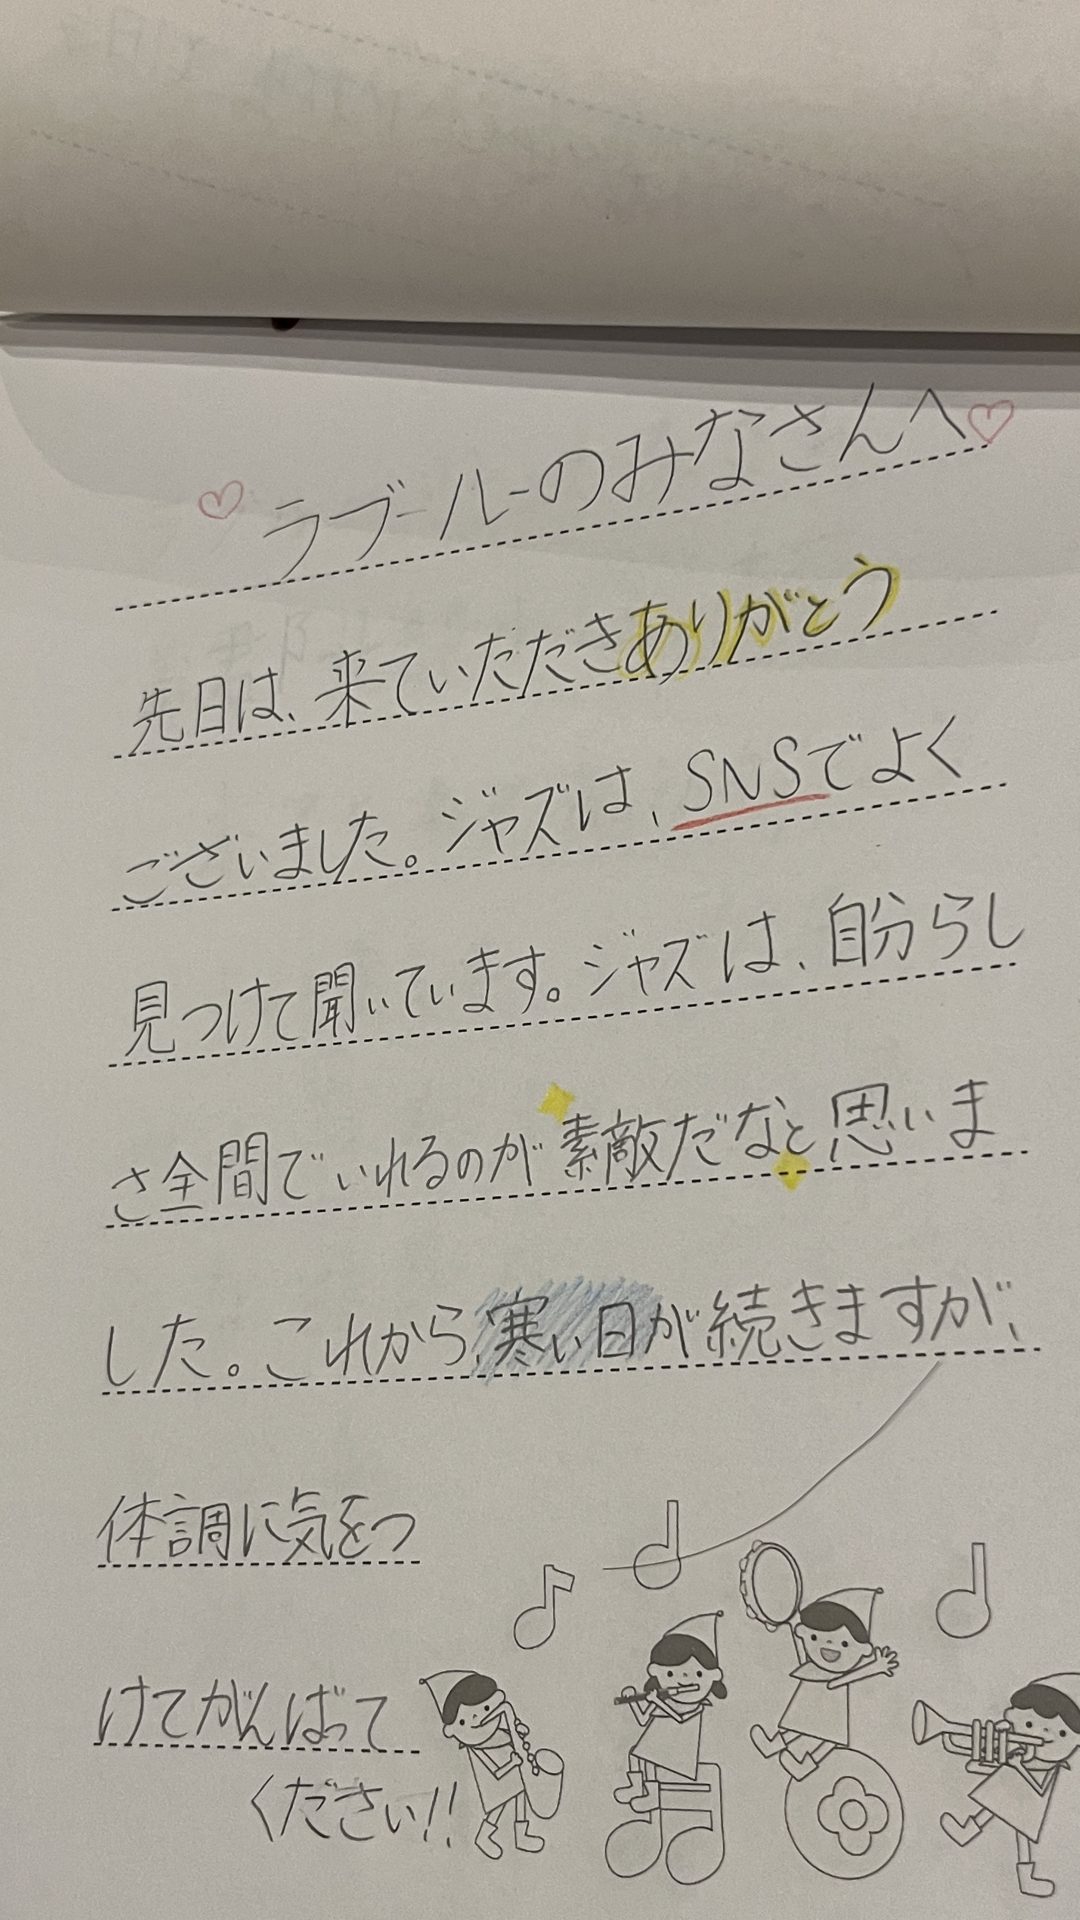 ラブールのみなさんへ
先日は、来ていただきありがとう
ございました。ジャズは、SNSでよく
見つけて聞いています。ジャズは、自分らし
さ全間でいれるのが素敵だなと思いま
した。これから寒い日が続きますが、
体調に気をつ
けてがんばって
ください!!